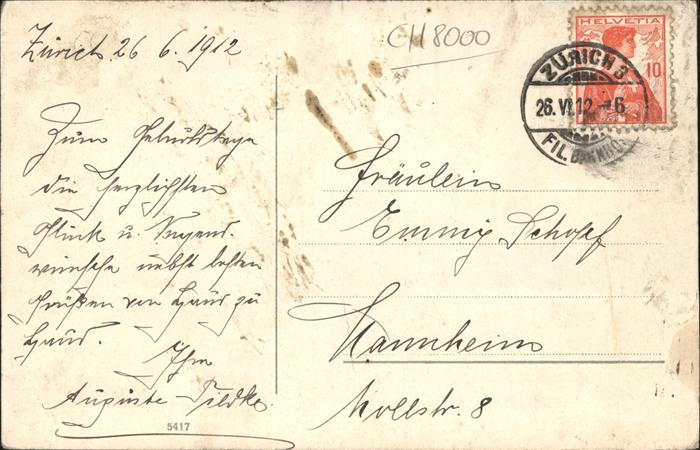 Zürich 26 6. 1912
CH 8000
HELVETIA
10
ZÜRICH 3
26. VI. 12. - 6
FIL. BAHNHOF
Zum Geburtstage
die herzlichsten
Glück u. Segens
wünsche nebst besten
Grüßen von Haus zu
Haus.
Ihre
Auguste
Fräulein
Emmy Schopf
Mannheim
Mollstr. 8
5417